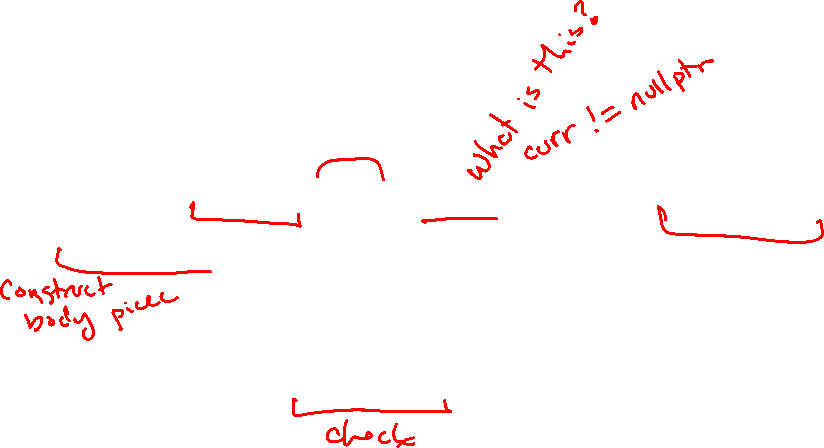 What is this?
curr != nullptr
Construct
body piece
check